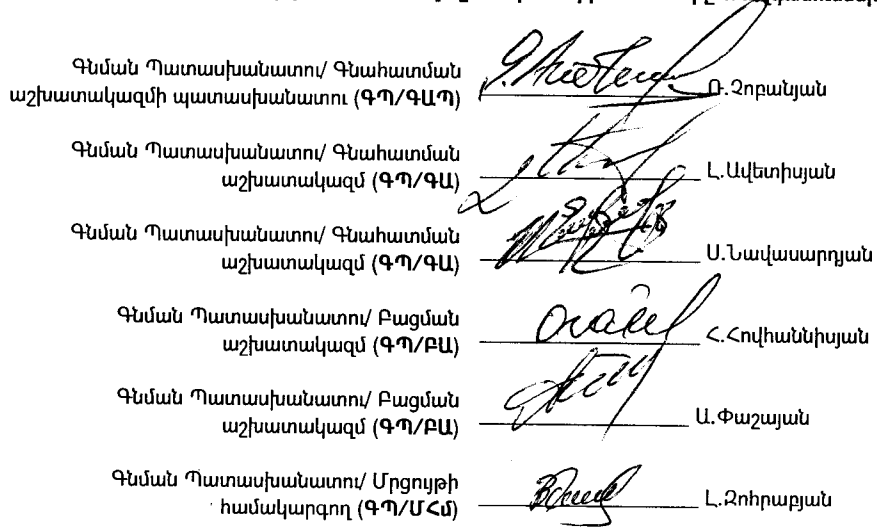 Գնման Պատասխանատու/ Գնահատման
աշխատակազմի պատասխանատու (ԳՊ/ԳԱՊ) Ռ.Չոբանյան
Գնման Պատասխանատու/ Գնահատման
աշխատակազմ (ԳՊ/ԳԱ) Լ.Ավետիսյան
Գնման Պատասխանատու/ Գնահատման
աշխատակազմ (ԳՊ/ԳԱ) Ս.Նավասարդյան
Գնման Պատասխանատու/ Բացման
աշխատակազմ (ԳՊ/ԲԱ) Հ.Հովհաննիսյան
Գնման Պատասխանատու/ Բացման
աշխատակազմ (ԳՊ/ԲԱ) Ա.Փաշայան
Գնման Պատասխանատու/ Մրցույթի
համակարգող (ԳՊ/ՄՀմ) Լ.Զոհրաբյան